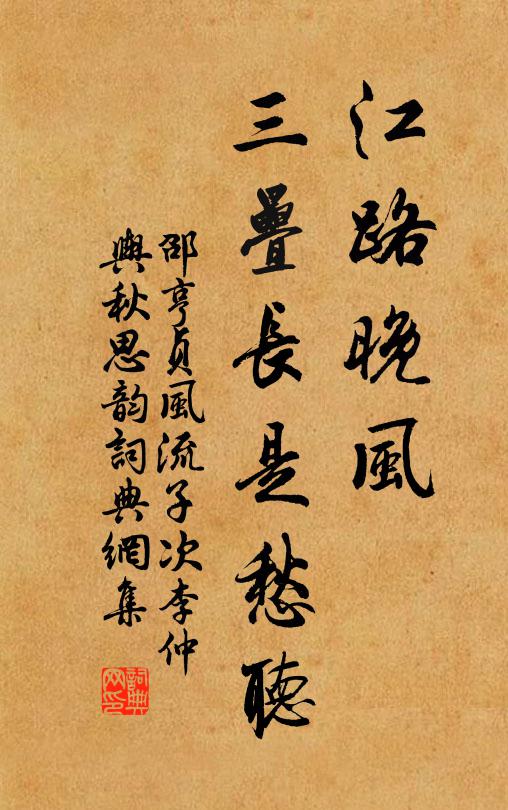 江路晚風
三疊長是愁聽
邵亨貞風流子次李仲
輿秋思韵詞典網集
詞典
网印